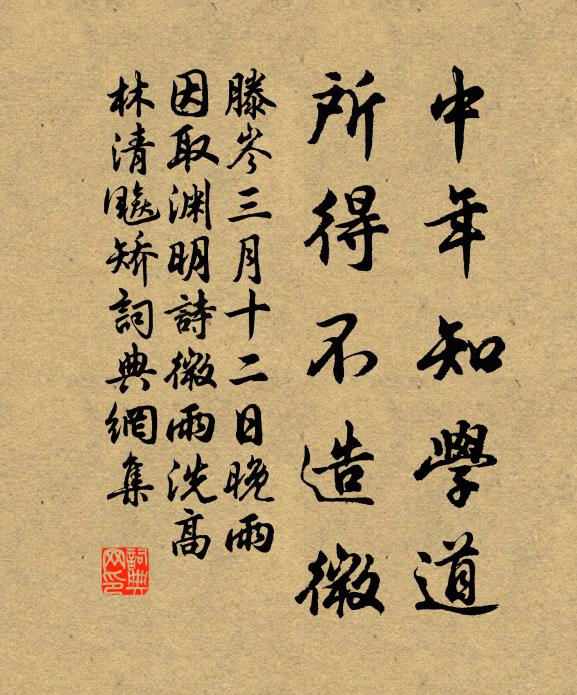 中年知學道
所得不造微
滕岑三月十二日晚雨
因取渊明詩微雨洗高
林清飈矯詞典網集
詞典网印